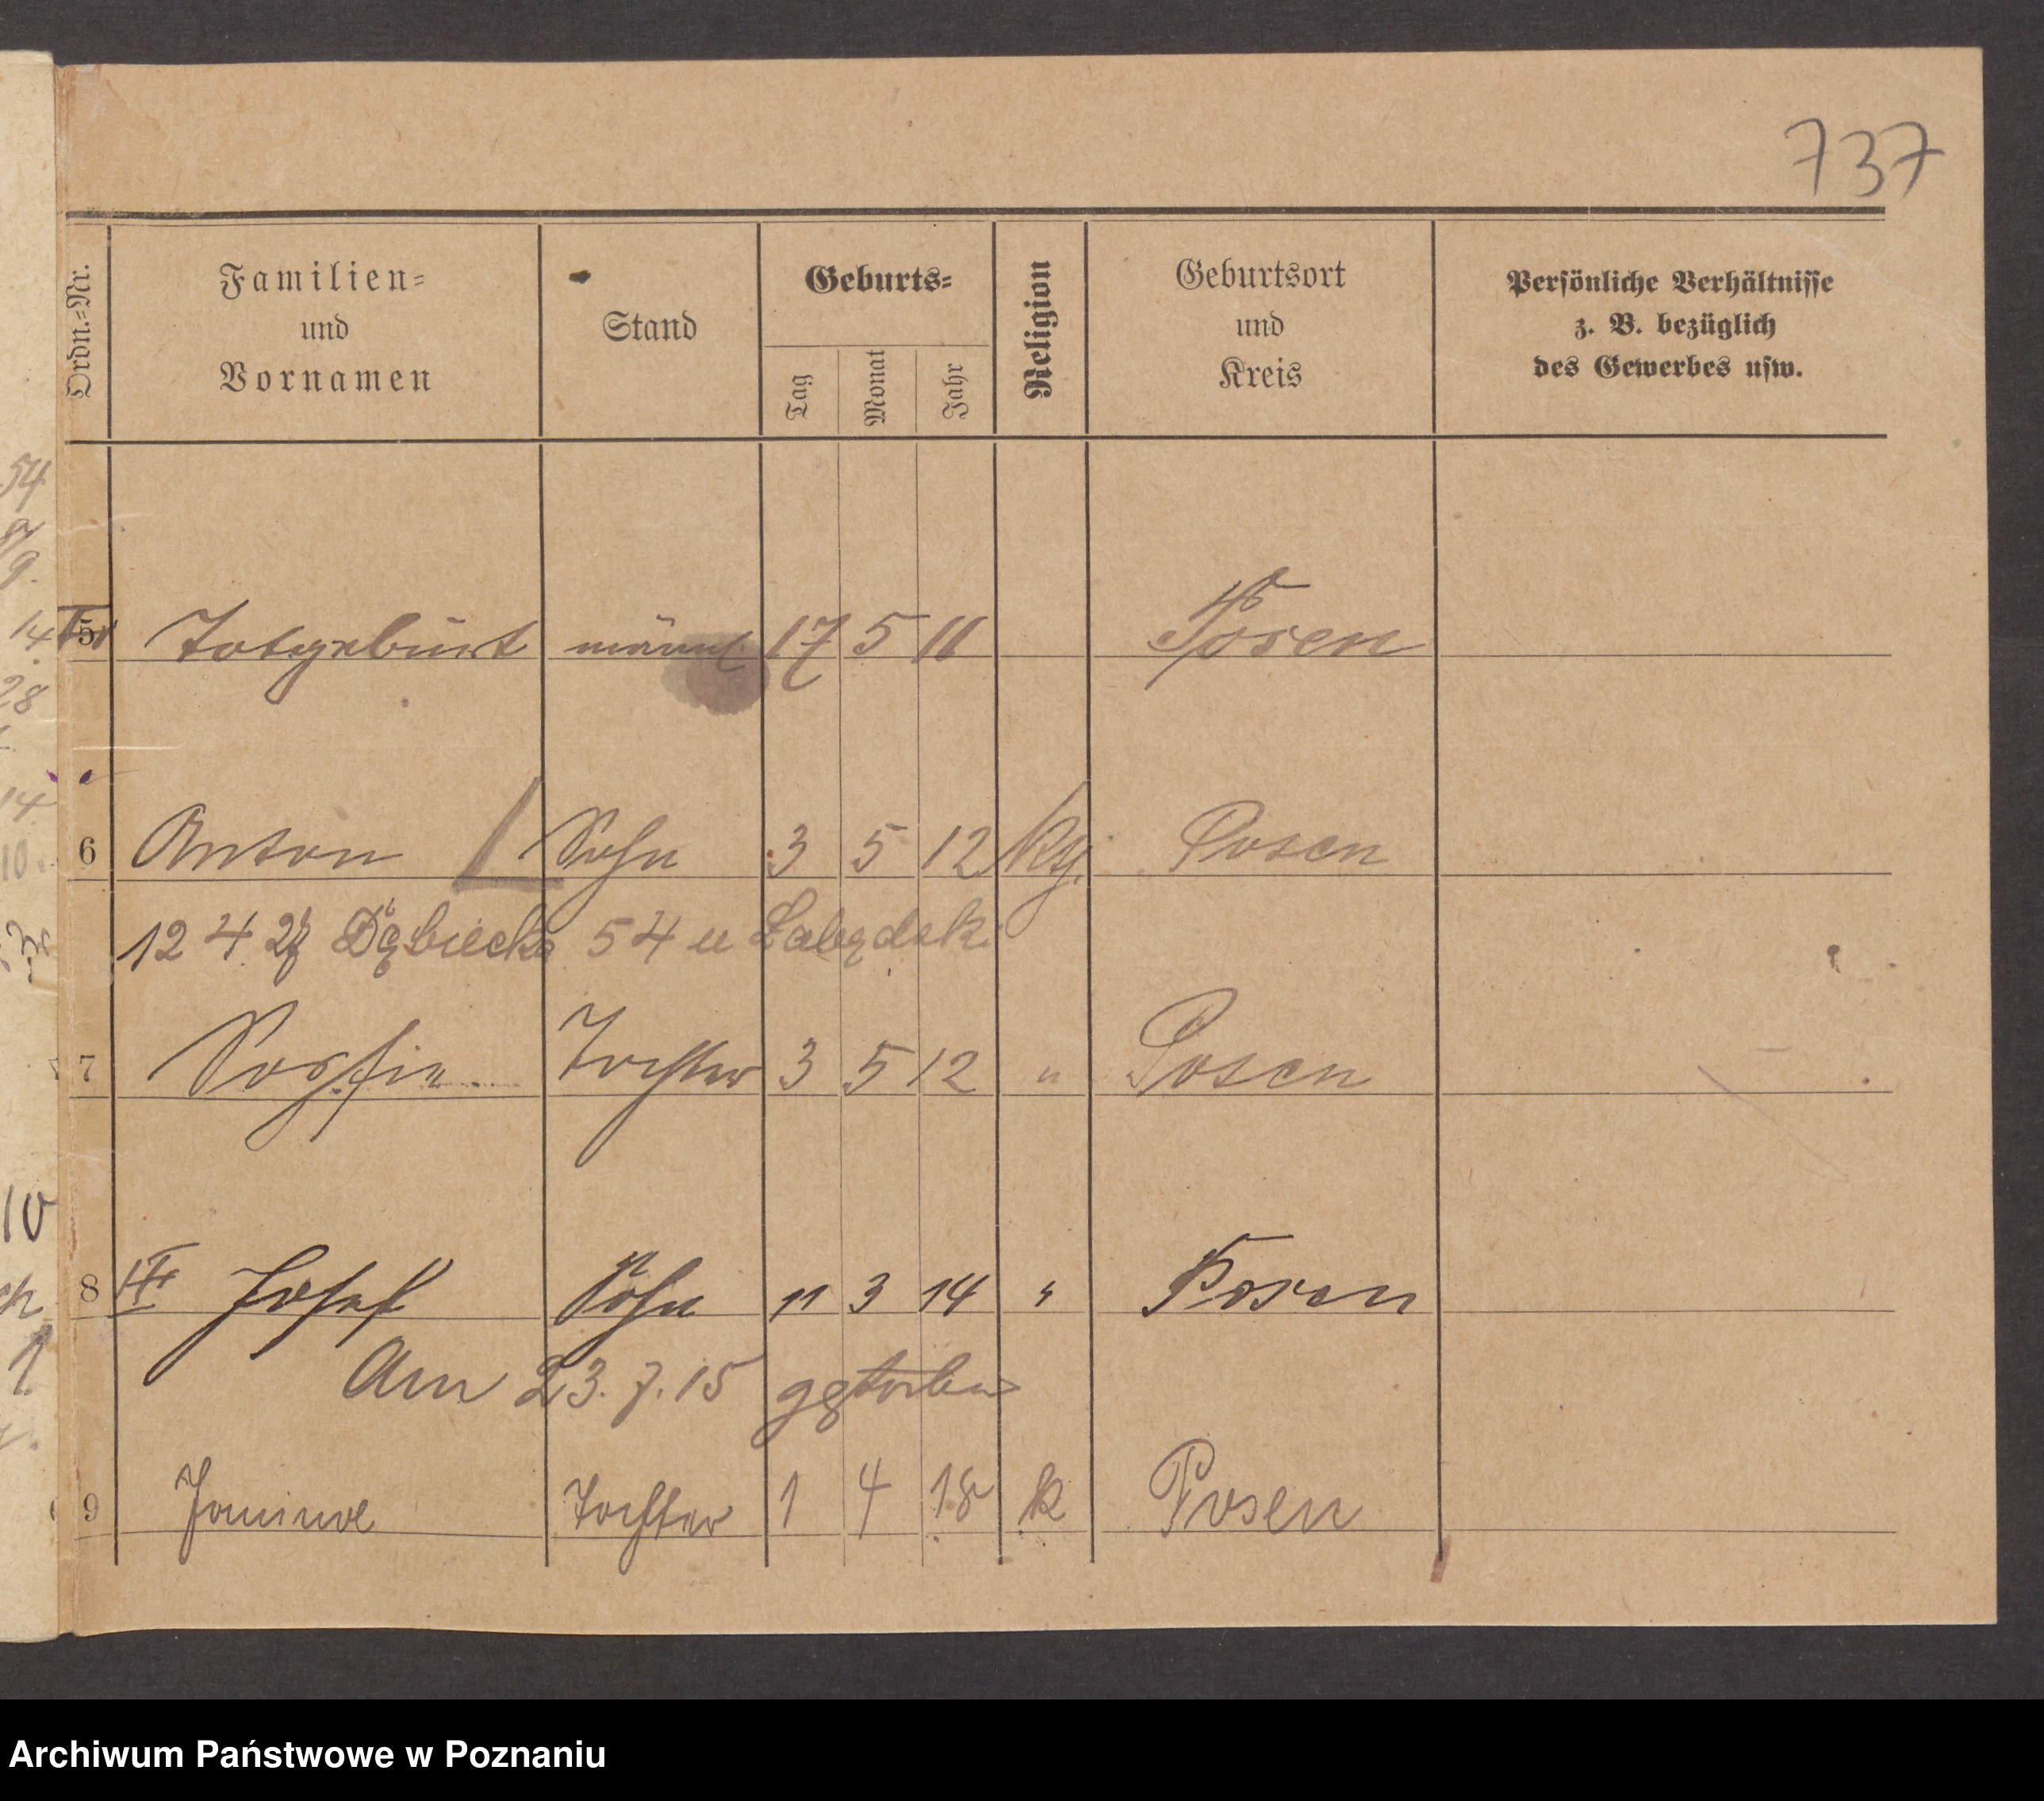 737
Ordn.=Nr.
Familien=
und
Vornamen
Stand
Geburts=
Tag
Monat
Jahr
Religion
Geburtsort
und
Kreis
Persönliche Verhältnisse
z. B. bezüglich
des Gewerbes usw.
5 Totgeburt männl. 17 5 11 Posen
6 Anton Sohn 3 5 12 kg. Posen
12 4 27 Dąbiecka 54 u
7 Sosfie Tochter 3 5 12 " Posen
8 Josef Sohn 11 3 14 " Posen
Am 23.7.15 gestorben
9 Janina Tochter 1 4 18 k Posen
54
9.
14
28
14
10.
10
Archiwum Państwowe w Poznaniu